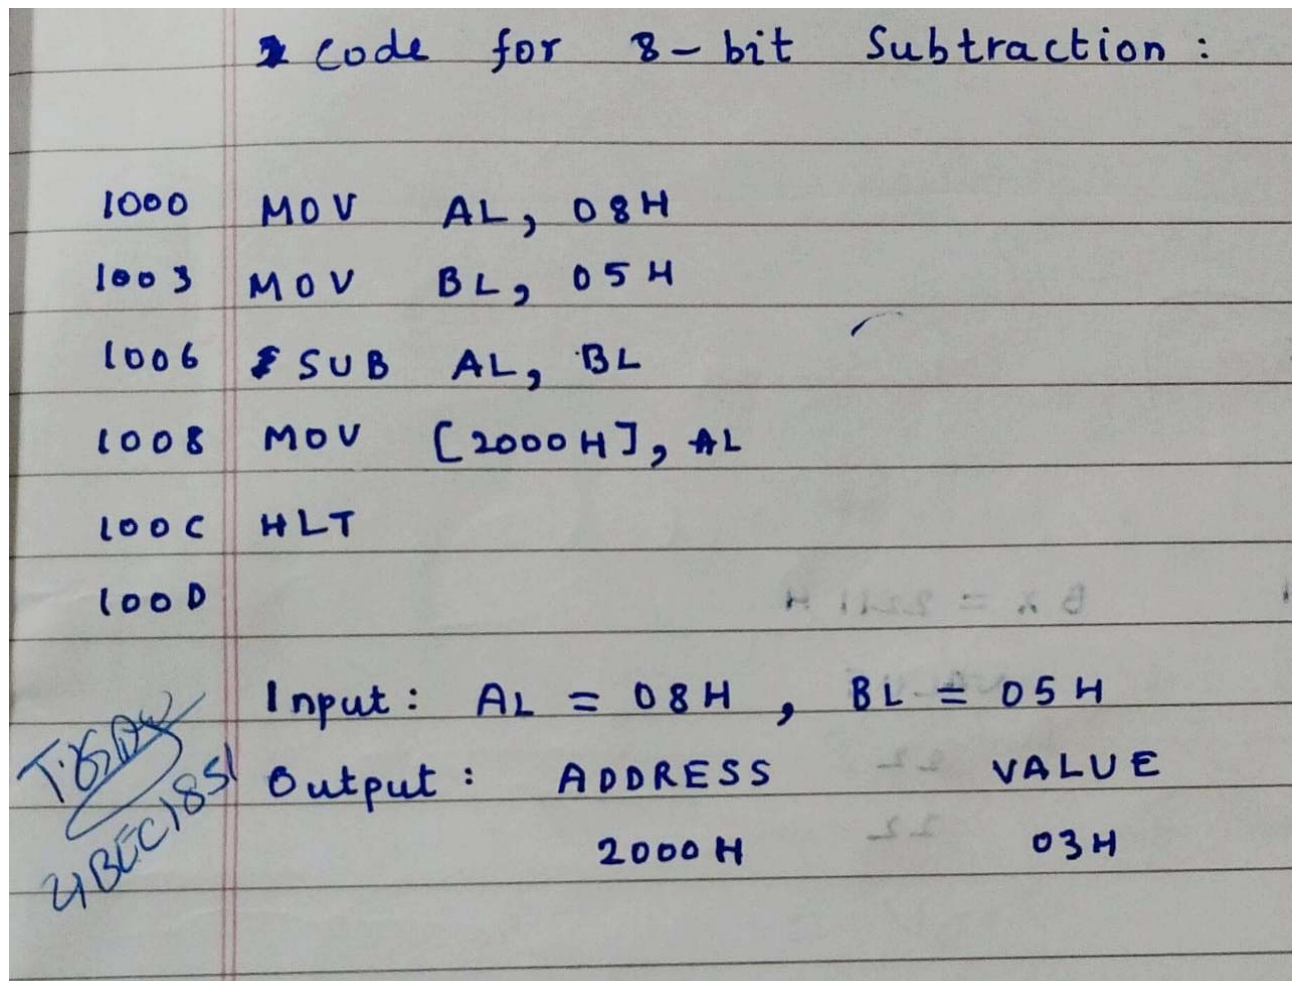 Code for 8-bit Subtraction :
1000 MOV AL, 08H
1003 MOV BL, 05H
1006 SUB AL, BL
1008 MOV [2000H], AL
100C HLT
100D
Input : AL = 08H , BL = 05H
Output : ADDRESS VALUE
2000H 03H
21BEC1851